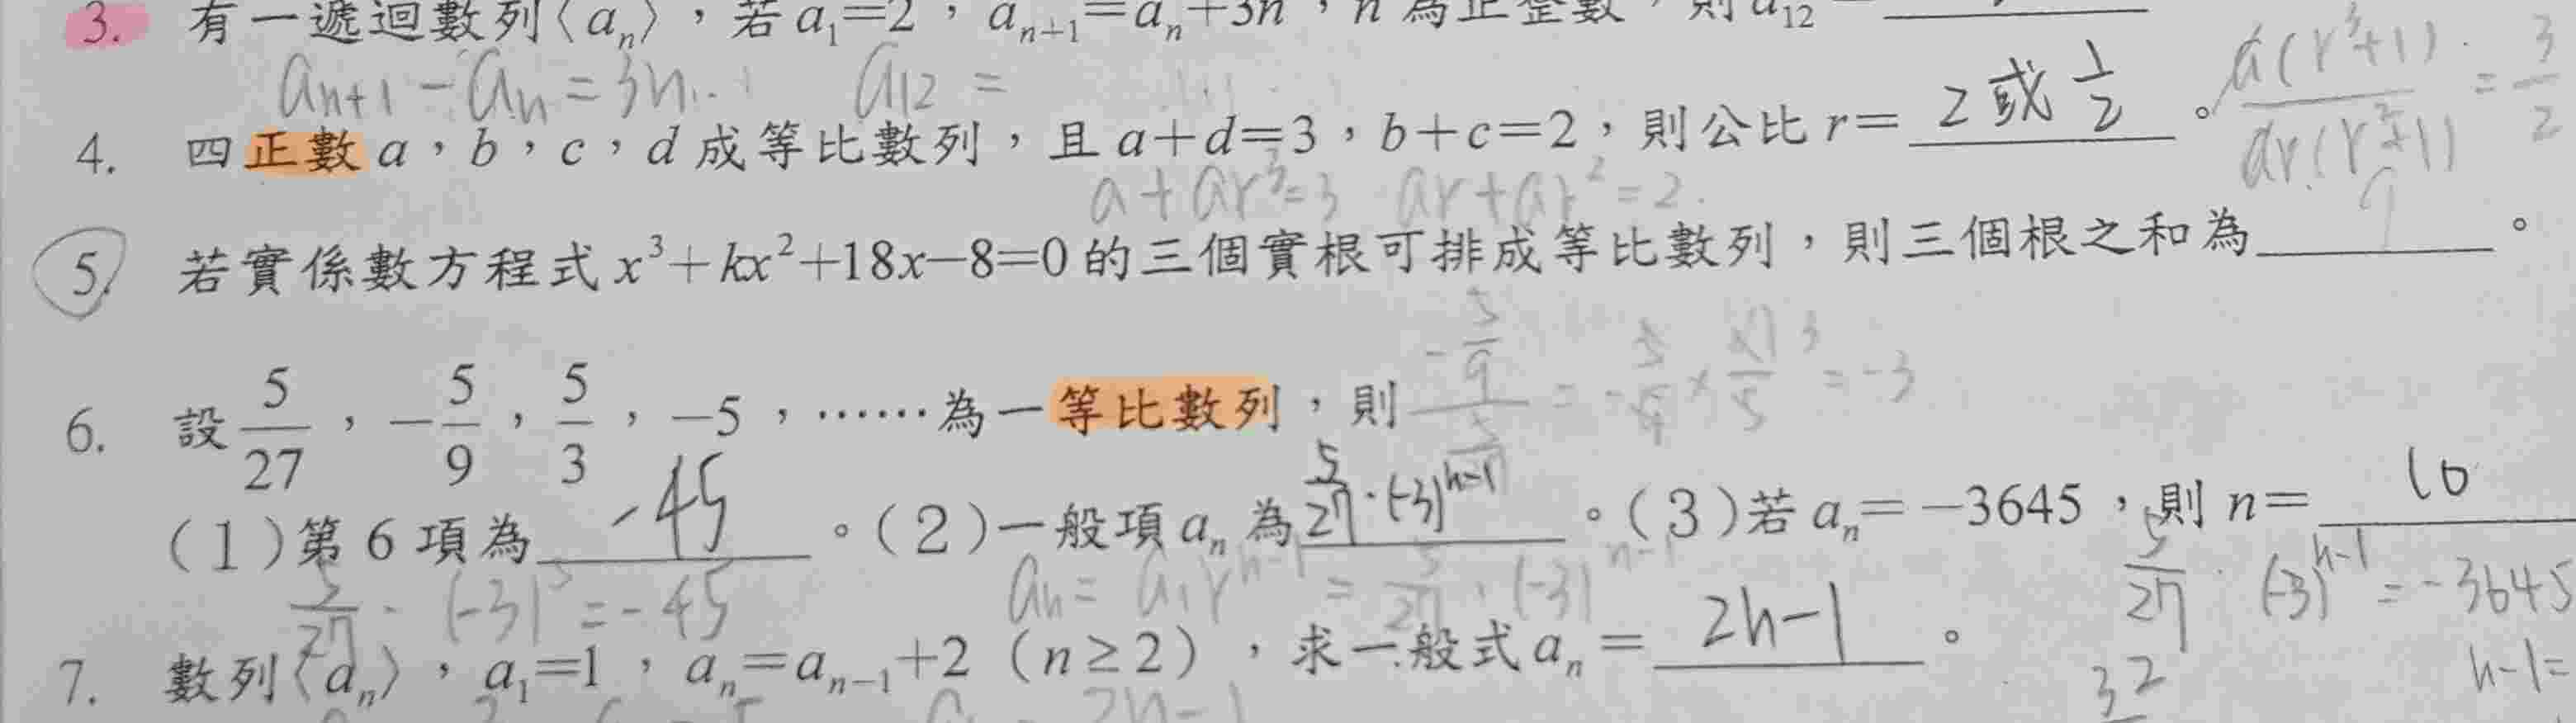 3. 有一遞迴數列〈aₙ〉，若 a₁=2，aₙ₊₁=aₙ+3n，n 為正整數，則 a₁₂=
aₙ₊₁-aₙ=3n a₁₂=
4. 四正數 a，b，c，d 成等比數列，且 a+d=3，b+c=2，則公比 r= 2或1/2 。
a+ar³=3 ar+ar²=2
a(r³+1) = 3/2
5. 若實係數方程式 x³+kx²+18x-8=0 的三個實根可排成等比數列，則三個根之和為 9 。
6. 設 5/27，-5/9，5/3，-5，……為一等比數列，則
= -3
(1)第 6 項為 -45 。(2)一般項 aₙ 為 5/27·(-3)ⁿ⁻¹ 。(3)若 aₙ=-3645，則 n= 10
5/27·(-3)⁵=-45 aₙ=a₁rⁿ⁻¹=5/27·(-3)ⁿ⁻¹ 5/27·(-3)ⁿ⁻¹=-3645
7. 數列〈aₙ〉，a₁=1，aₙ=aₙ₋₁+2（n≥2），求一般式 aₙ= 2n-1 。
n-1=